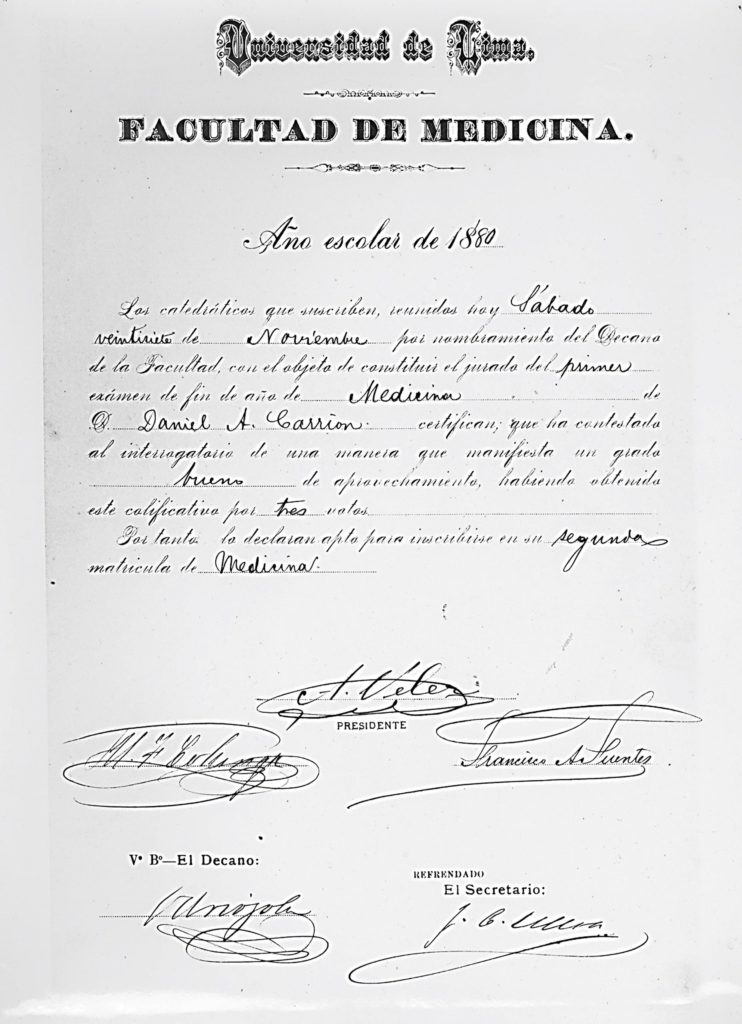 Universidad de Lima.
FACULTAD DE MEDICINA.
Año escolar de 1880
Los catedráticos que suscriben, reunidos hoy Sábado
veintisiete de Noviembre por nombramiento del Decano
de la Facultad, con el objeto de constituir el jurado del primer
exámen de fin de año de Medicina de
D. Daniel A. Carrion certifican; que ha contestado
al interrogatorio de una manera que manifiesta un grado
bueno de aprovechamiento, habiendo obtenido
este calificativo por tres votos
Por tanto lo declaran apto para inscribirse en su segunda
matricula de Medicina.
A. Velez
PRESIDENTE
M. F. Francisco A. Fuentes
Vº Bº—El Decano:
REFRENDADO
El Secretario:
J. C.